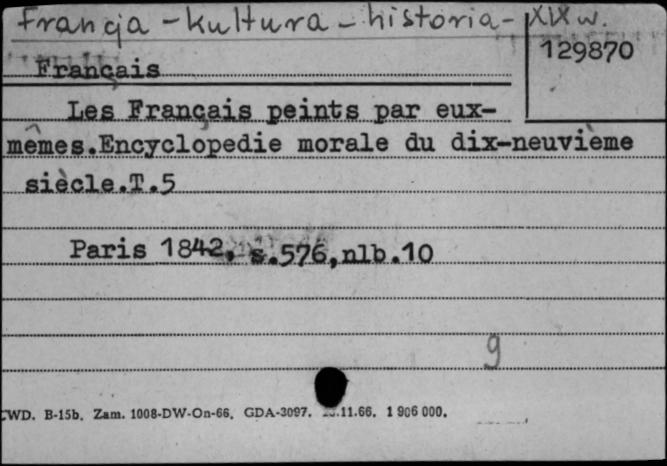 Francja - kultura - historia - XIX w.
129870
Français
Les Français peints par eux-
mêmes.Encyclopedie morale du dix-neuvième
siècle.T.5
Paris 1842, s.576,nlb.10
9
CWD. B-15b. Zam. 1008-DW-On-66. GDA-3097. .11.66. 1 906 000.